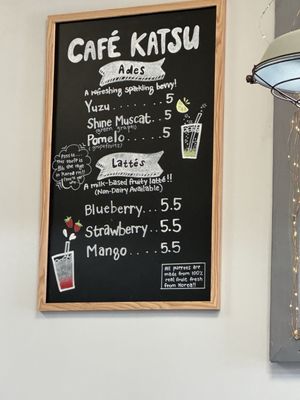 CAFÉ KATSU
Ades
A refreshing sparkling bevvy!
Yuzu........5
Shine Muscat...5
(green grape)
Pomelo.......5
(grapefruit)
Lattés
A milk-based fruity latté!!
(Non-Dairy Available)
Blueberry...5.5
Strawberry...5.5
Mango....5.5
All purees are
made from 100%
real fruit fresh
from Korea!!